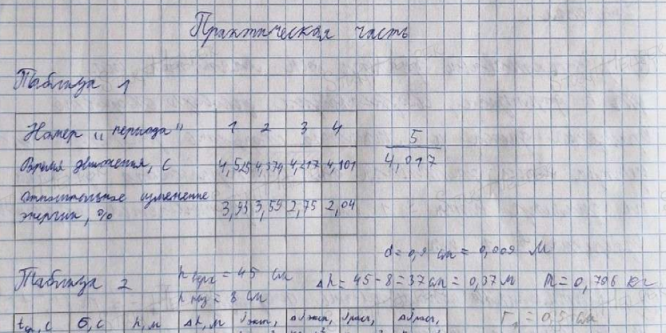 Практическая часть
Таблица 1
Номер „периода" 1 2 3 4 5
Время движения, с 4,525 4,379 4,217 4,101 4,017
Относительное изменение
энергии, % 3,93 3,55 2,75 2,04
d = 0,9 см = 0,009 м
Таблица 2 = 45 см Δh = 45 - 8 = 37 см = 0,37 м = 0,706 кг
= 8 см = 0,5 см
с с h, м Δh, м